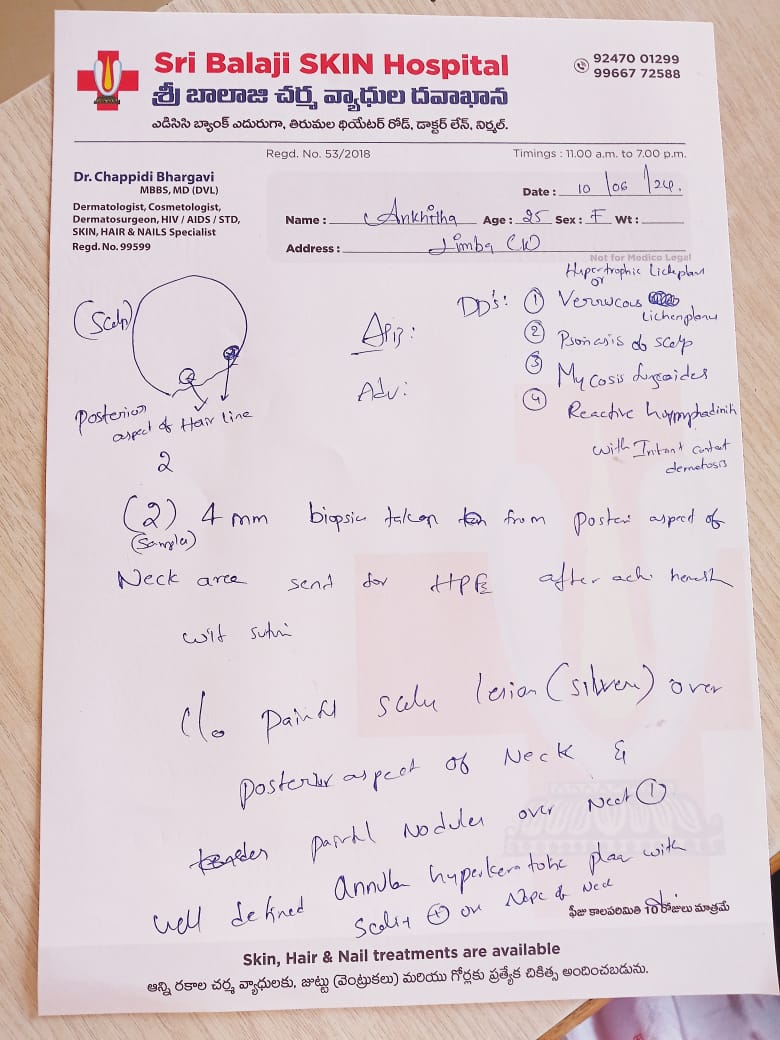 Sri Balaji SKIN Hospital
శ్రీ బాలాజి చర్మ వ్యాధుల దవాఖాన
ఎడిసిసి బ్యాంక్ ఎదురుగా, తిరుమల థియేటర్ రోడ్, డాక్టర్ లేన్, నిర్మల్.
92470 01299
99667 72588
Regd. No. 53/2018
Timings : 11.00 a.m. to 7.00 p.m.
Dr. Chappidi Bhargavi
MBBS, MD (DVL)
Dermatologist, Cosmetologist,
Dermatosurgeon, HIV / AIDS / STD,
SKIN, HAIR & NAILS Specialist
Regd. No. 99599
Date : 10/06/24.
Name : Ankhitha Age : 25 Sex : F Wt :
Address : Limba
Not for Medico Legal
(Scalp)
Posterior
aspect of Hair line
2
Adv:
DD's:
Hypertrophic
or
① Verrucous
② Psoriasis of scalp
③ Mycosis
④ Reactive
with Irritant contact
(2) 4 mm biopsy taken from aspect of
(Samples)
Neck area send for HPE after
c/o painful lesion (silvery) over
posterior aspect of Neck &
painful Nodules over Neck ①
well defined hyperkeratotic with
on Nape of Neck
ఫీజు కాలపరిమితి 10 రోజులు మాత్రమే
Skin, Hair & Nail treatments are available
అన్ని రకాల చర్మ వ్యాధులకు, జుట్టు (వెంట్రుకలు) మరియు గోర్లకు ప్రత్యేక చికిత్స అందించబడును.